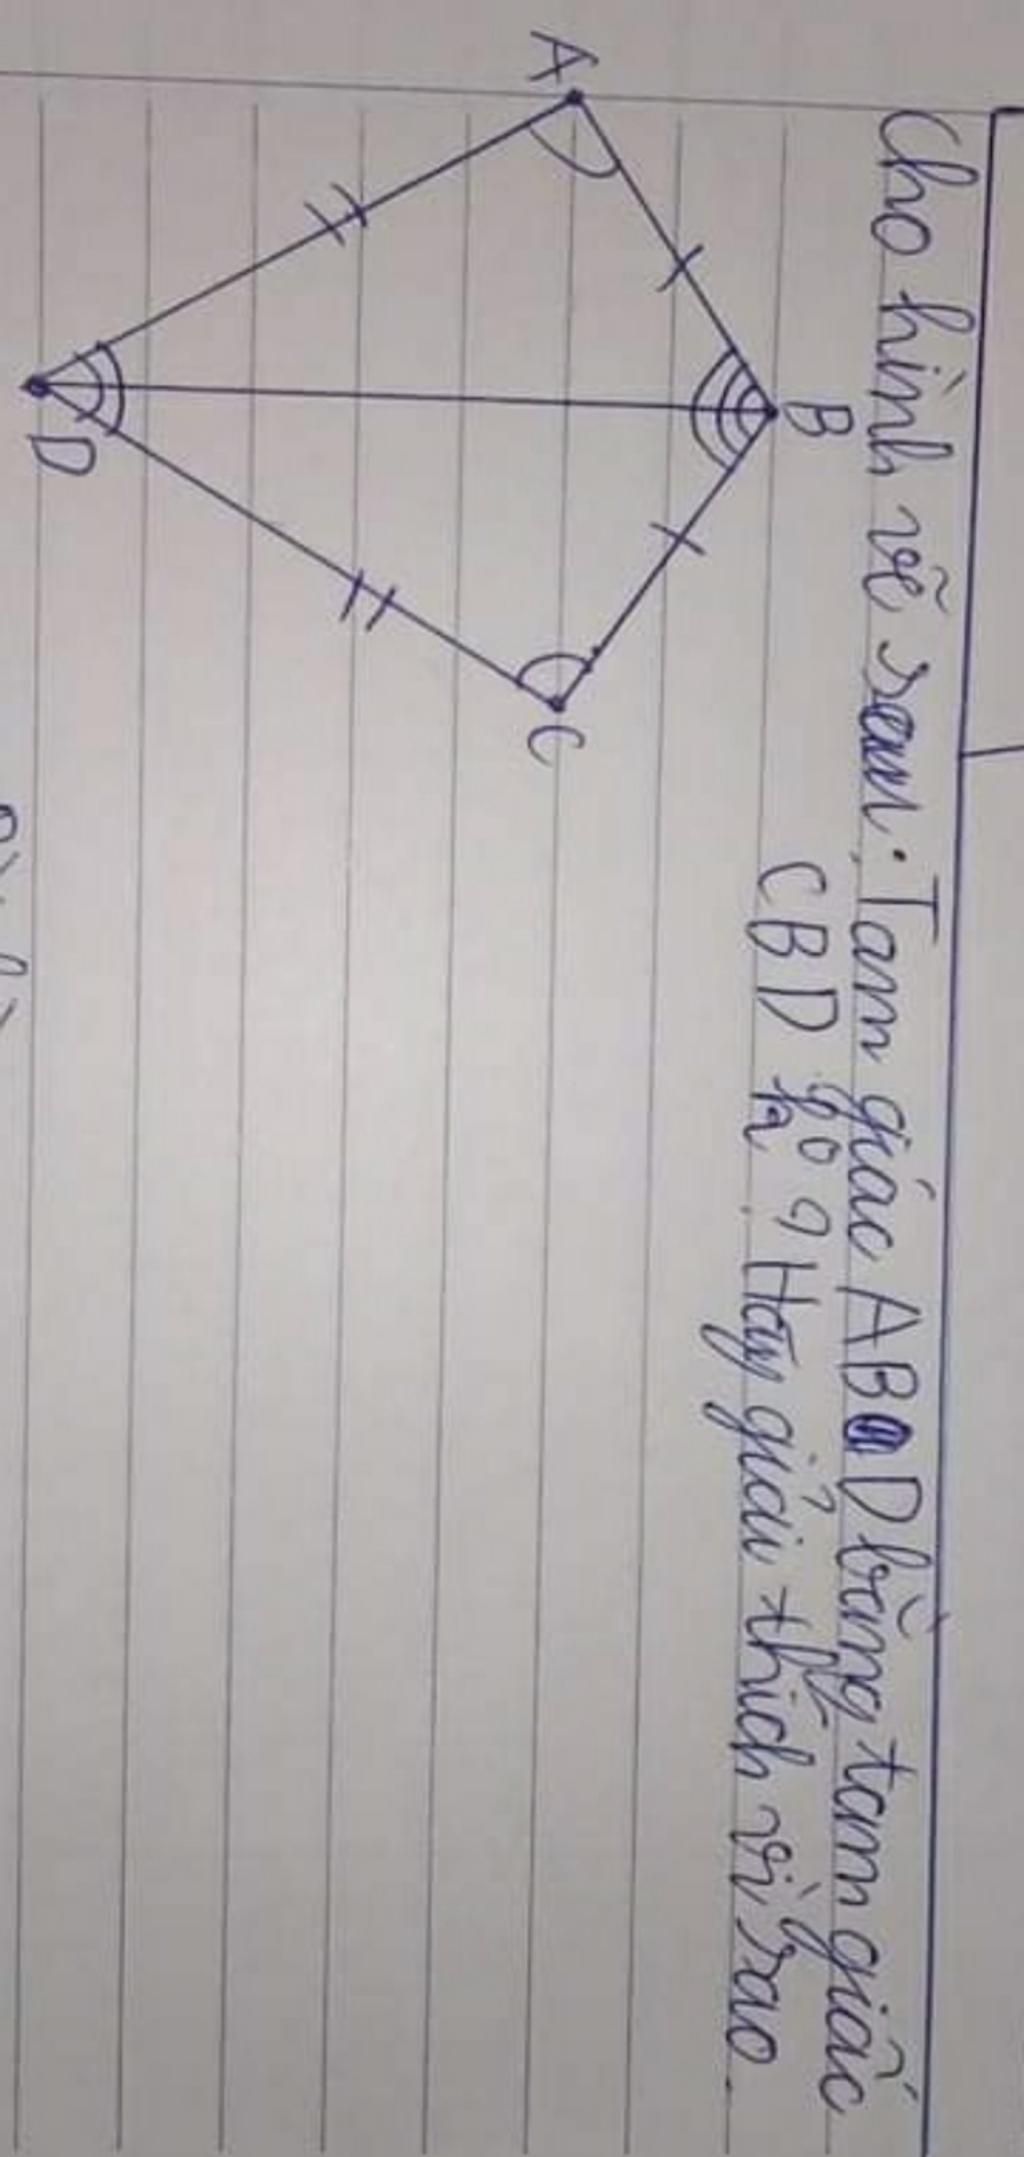 Cho hình vẽ sau: Tam giác ABD bằng tam giác
CBD ko? Hãy giải thích vì sao.
B
A
C
D